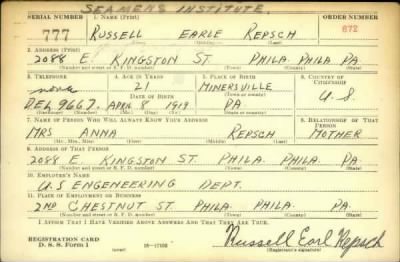 SEAMENS INSTITUTE.
SERIAL NUMBER 1. NAME (Print) ORDER NUMBER
777 RUSSELL EARLE REPSCH 672
2. ADDRESS (Print)
2088 E. KINGSTON ST. PHILA. PHILA PA.
(Number and street or R. F. D. number) (Town) (County) (State)
3. TELEPHONE 4. AGE IN YEARS 5. PLACE OF BIRTH 6. COUNTRY OF CITIZENSHIP
none 21 MINERSVILLE
DATE OF BIRTH U.S.
DEL 9667. APRIL 8 1919 PA
7. NAME OF PERSON WHO WILL ALWAYS KNOW YOUR ADDRESS 8. RELATIONSHIP OF THAT PERSON
MRS ANNA REPSCH MOTHER
(Mr., Mrs., Miss) (First) (Middle) (Last)
9. ADDRESS OF THAT PERSON
2088 E. KINGSTON ST. PHILA. PHILA. PA
(Number and street or R. F. D. number) (Town) (County) (State)
10. EMPLOYER'S NAME
U.S ENGENEERING DEPT.
11. PLACE OF EMPLOYMENT OR BUSINESS
2ND CHESTNUT ST. PHILA. PHILA. PA.
(Number and street or R. F. D. number) (Town) (County) (State)
I AFFIRM THAT I HAVE VERIFIED ABOVE ANSWERS AND THAT THEY ARE TRUE.
REGISTRATION CARD
D. S. S. Form 1 (over) 16-17105 Russell Earl Repsch
(Registrant's signature)